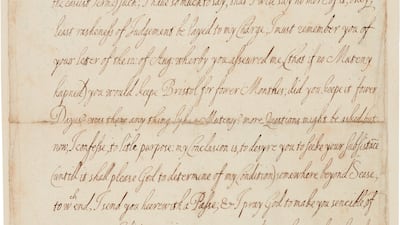 such; I have so much to say, that I will say no more of it, only
least rashness of Judgement be layed to my Charge, I must remember you of
your letter of the 12 of Aug. whereby you asseured me, (that if no Muteny
hapned,) you would keepe Bristoll for fower Monthes; did you keepe it fower
Dayes? was there any thing lyke a Muteny? more Questions might be asked, but
now, I confesse, to litle purpose: my Conclusion is, to desyre you to seeke your subsistence
(untill it shall please God to determine of my Condition) somewhere beyond Seas,
to wch end, I send you heerewith a Passe, & I pray God to make you sencible of